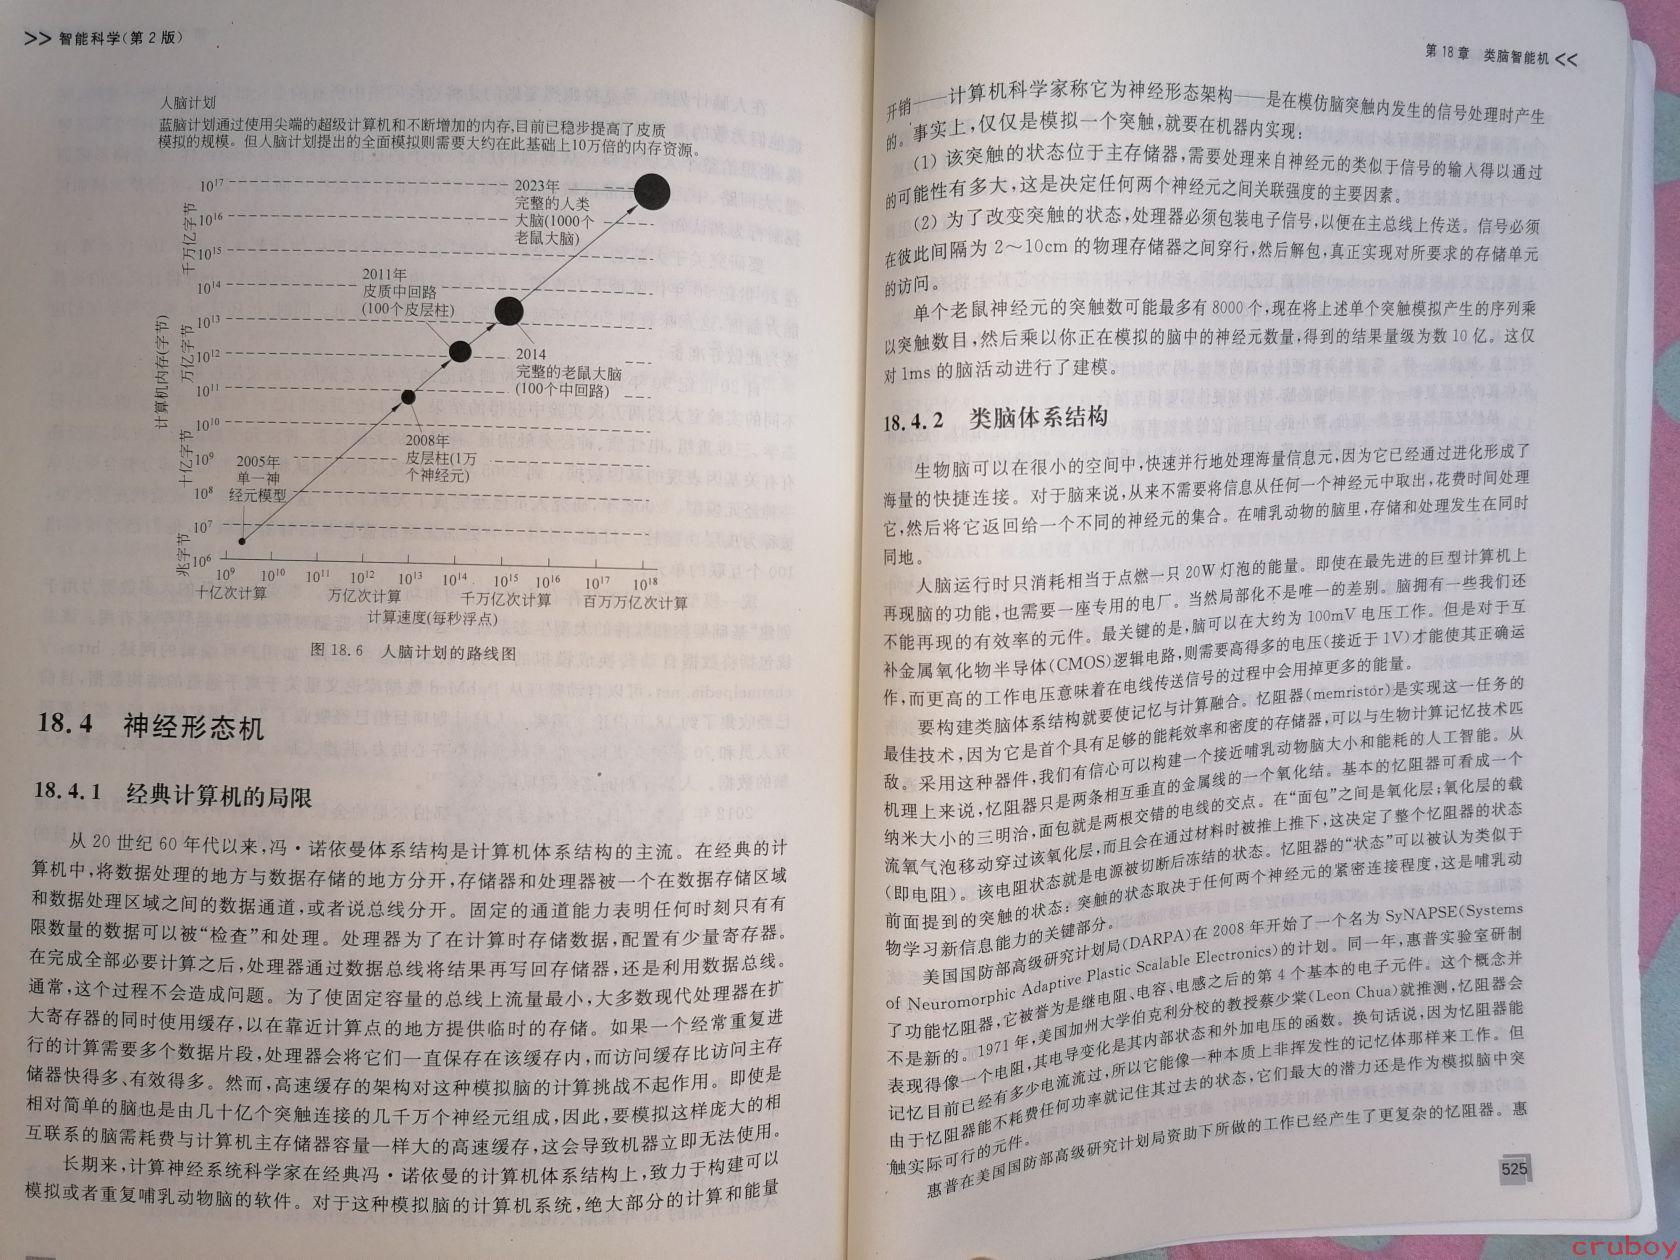 >> 智能科学(第2版)
人脑计划
蓝脑计划通过使用尖端的超级计算机和不断增加的内存,目前已稳步提高了皮质
模拟的规模。但人脑计划提出的全面模拟则需要大约在此基础上10万倍的内存资源。
计算机内存(字节)
千万亿字节
万亿字节
十亿字节
兆字节
10¹⁷
10¹⁶
10¹⁵
10¹⁴
10¹³
10¹²
10¹¹
10¹⁰
10⁹
10⁸
10⁷
10⁶
2023年
完整的人类
大脑(1000个
老鼠大脑)
2011年
皮质中回路
(100个皮层柱)
2014
完整的老鼠大脑
(100个中回路)
2008年
皮层柱(1万
个神经元)
2005年
单一神
经元模型
10⁹ 10¹⁰ 10¹¹ 10¹² 10¹³ 10¹⁴ 10¹⁵ 10¹⁶ 10¹⁷ 10¹⁸
十亿次计算 万亿次计算 千万亿次计算 百万万亿次计算
计算速度(每秒浮点)
图 18.6 人脑计划的路线图
18.4 神经形态机
18.4.1 经典计算机的局限
从 20 世纪 60 年代以来,冯·诺依曼体系结构是计算机体系结构的主流。在经典的计
算机中,将数据处理的地方与数据存储的地方分开,存储器和处理器被一个在数据存储区域
和数据处理区域之间的数据通道,或者说总线分开。固定的通道能力表明任何时刻只有有
限数量的数据可以被“检查”和处理。处理器为了在计算时存储数据,配置有少量寄存器。
在完成全部必要计算之后,处理器通过数据总线将结果再写回存储器,还是利用数据总线。
通常,这个过程不会造成问题。为了使固定容量的总线上流量最小,大多数现代处理器在扩
大寄存器的同时使用缓存,以在靠近计算点的地方提供临时的存储。如果一个经常重复进
行的计算需要多个数据片段,处理器会将它们一直保存在该缓存内,而访问缓存比访问主存
储器快得多、有效得多。然而,高速缓存的架构对这种模拟脑的计算挑战不起作用。即使是
相对简单的脑也是由几十亿个突触连接的几千万个神经元组成,因此,要模拟这样庞大的相
互联系的脑需耗费与计算机主存储器容量一样大的高速缓存,这会导致机器立即无法使用。
长期来,计算神经系统科学家在经典冯·诺依曼的计算机体系结构上,致力于构建可以
模拟或者重复哺乳动物脑的软件。对于这种模拟脑的计算机系统,绝大部分的计算和能量
第 18 章 类脑智能机 <<
开销——计算机科学家称它为神经形态架构——是在模仿脑突触内发生的信号处理时产生
的。事实上,仅仅是模拟一个突触,就要在机器内实现:
(1) 该突触的状态位于主存储器,需要处理来自神经元的类似于信号的输入得以通过
的可能性有多大,这是决定任何两个神经元之间关联强度的主要因素。
(2) 为了改变突触的状态,处理器必须包装电子信号,以便在主总线上传送。信号必须
在彼此间隔为 2～10cm 的物理存储器之间穿行,然后解包,真正实现对所要求的存储单元
的访问。
单个老鼠神经元的突触数可能最多有 8000 个,现在将上述单个突触模拟产生的序列乘
以突触数目,然后乘以你正在模拟的脑中的神经元数量,得到的结果量级为数 10 亿。这仅
对 1ms 的脑活动进行了建模。
18.4.2 类脑体系结构
生物脑可以在很小的空间中,快速并行地处理海量信息元,因为它已经通过进化形成了
海量的快捷连接。对于脑来说,从来不需要将信息从任何一个神经元中取出,花费时间处理
它,然后将它返回给一个不同的神经元的集合。在哺乳动物的脑里,存储和处理发生在同时
同地。
人脑运行时只消耗相当于点燃一只 20W 灯泡的能量。即使在最先进的巨型计算机上
再现脑的功能,也需要一座专用的电厂。当然局部化不是唯一的差别。脑拥有一些我们还
不能再现的有效率的元件。最关键的是,脑可以在大约为 100mV 电压工作。但是对于互
补金属氧化物半导体(CMOS)逻辑电路,则需要高得多的电压(接近于 1V)才能使其正确运
作,而更高的工作电压意味着在电线传送信号的过程中会用掉更多的能量。
要构建类脑体系结构就要使记忆与计算融合。忆阻器(memristor)是实现这一任务的
最佳技术,因为它是首个具有足够的能耗效率和密度的存储器,可以与生物计算记忆技术匹
敌。采用这种器件,我们有信心可以构建一个接近哺乳动物脑大小和能耗的人工智能。从
机理上来说,忆阻器只是两条相互垂直的金属线的一个氧化结。基本的忆阻器可看成一个
纳米大小的三明治,面包就是两根交错的电线的交点。在“面包”之间是氧化层;氧化层的载
流氧气泡移动穿过该氧化层,而且会在通过材料时被推上推下,这决定了整个忆阻器的状态
(即电阻)。该电阻状态就是电源被切断后冻结的状态。忆阻器的“状态”可以被认为类似于
前面提到的突触的状态:突触的状态取决于任何两个神经元的紧密连接程度,这是哺乳动
物学习新信息能力的关键部分。
美国国防部高级研究计划局(DARPA)在 2008 年开始了一个名为 SyNAPSE(Systems
of Neuromorphic Adaptive Plastic Scalable Electronics)的计划。同一年,惠普实验室研制
了功能忆阻器,它被誉为是继电阻、电容、电感之后的第 4 个基本的电子元件。这个概念并
不是新的。1971 年,美国加州大学伯克利分校的教授蔡少棠(Leon Chua)就推测,忆阻器会
表现得像一个电阻,其电导变化是其内部状态和外加电压的函数。换句话说,因为忆阻器能
记忆目前已经有多少电流流过,所以它能像一种本质上非挥发性的记忆体那样来工作。但
由于忆阻器能不耗费任何功率就记住其过去的状态,它们最大的潜力还是作为模拟脑中突
触实际可行的元件。
惠普在美国国防部高级研究计划局资助下所做的工作已经产生了更复杂的忆阻器。惠
525
cruboy